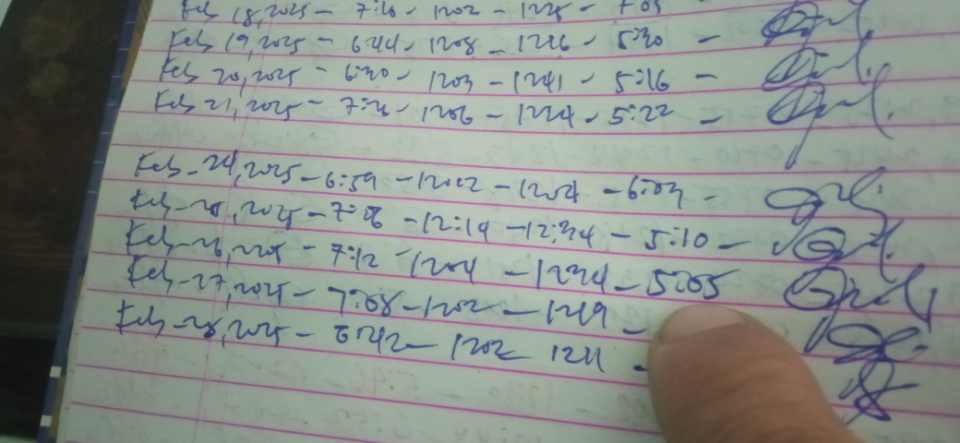 Feb 18, 2025 - 7:10 - 1202 - 1225 - 
Feb 19, 2025 - 6:44 - 1208 - 1226 - 5:30 -
Feb 20, 2025 - 6:30 - 1203 - 1241 - 5:16 -
Feb 21, 2025 - 7:21 - 1206 - 1224 - 5:22 -
Feb - 24, 2025 - 6:59 - 1202 - 1224 - 6:03 -
Feb - 2025 - 7:06 - 12:14 - 12:34 - 5:10 -
Feb - 26, 2025 - 7:12 - 1204 - 1234 - 5:05
Feb - 27, 2025 - 7:08 - 1202 - 1219 -
Feb - 28, 2025 - 6:42 - 1202 1211 -